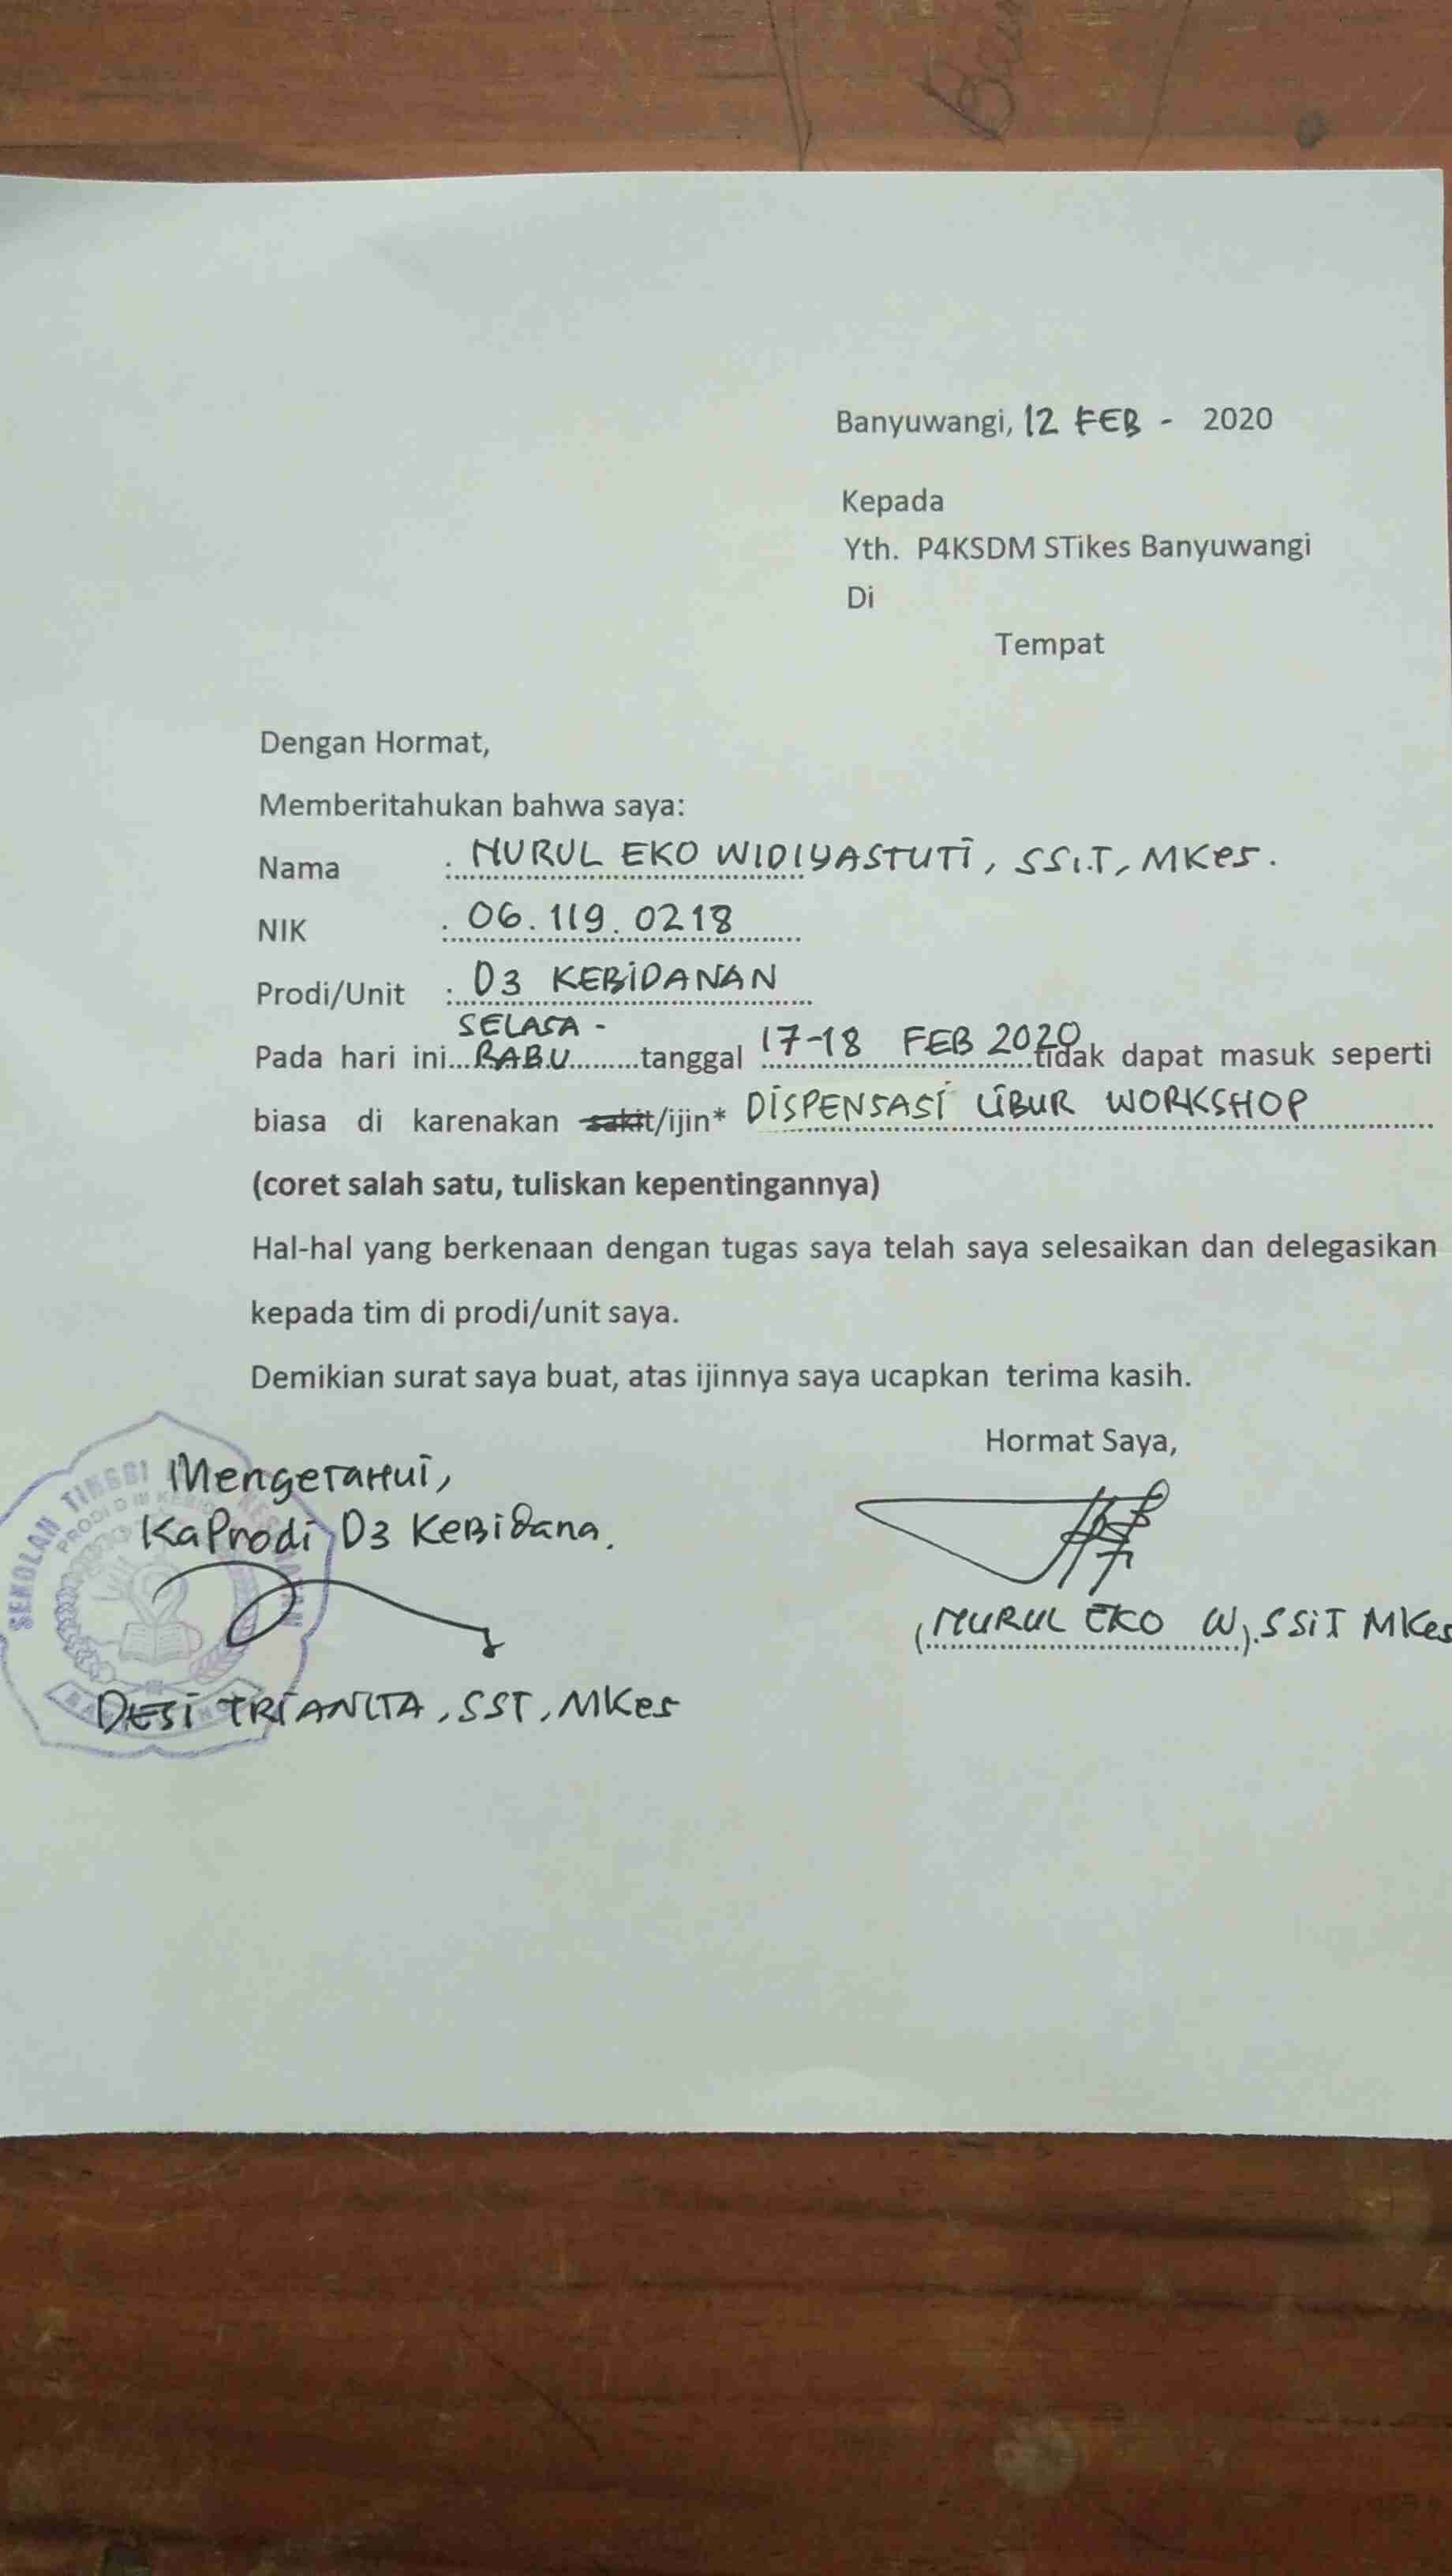 Banyuwangi, 12 FEB - 2020
Kepada
Yth. P4KSDM STikes Banyuwangi
Di
Tempat
Dengan Hormat,
Memberitahukan bahwa saya:
Nama : NURUL EKO WIDIYASTUTI, SSi.T, MKes.
NIK : 06.119.0218
Prodi/Unit : D3 KEBIDANAN
SELASA -
Pada hari ini...RABU.........tanggal 17-18 FEB 2020 tidak dapat masuk seperti
biasa di karenakan sakit/ijin* DISPENSASI LIBUR WORKSHOP
(coret salah satu, tuliskan kepentingannya)
Hal-hal yang berkenaan dengan tugas saya telah saya selesaikan dan delegasikan
kepada tim di prodi/unit saya.
Demikian surat saya buat, atas ijinnya saya ucapkan terima kasih.
Hormat Saya,
Mengetahui,
KaProdi D3 Kebidana.
(NURUL EKO W).SSiT MKes
DESI TRIANITA, SST, MKes
SEKOLAH TINGGI
PRODI D III